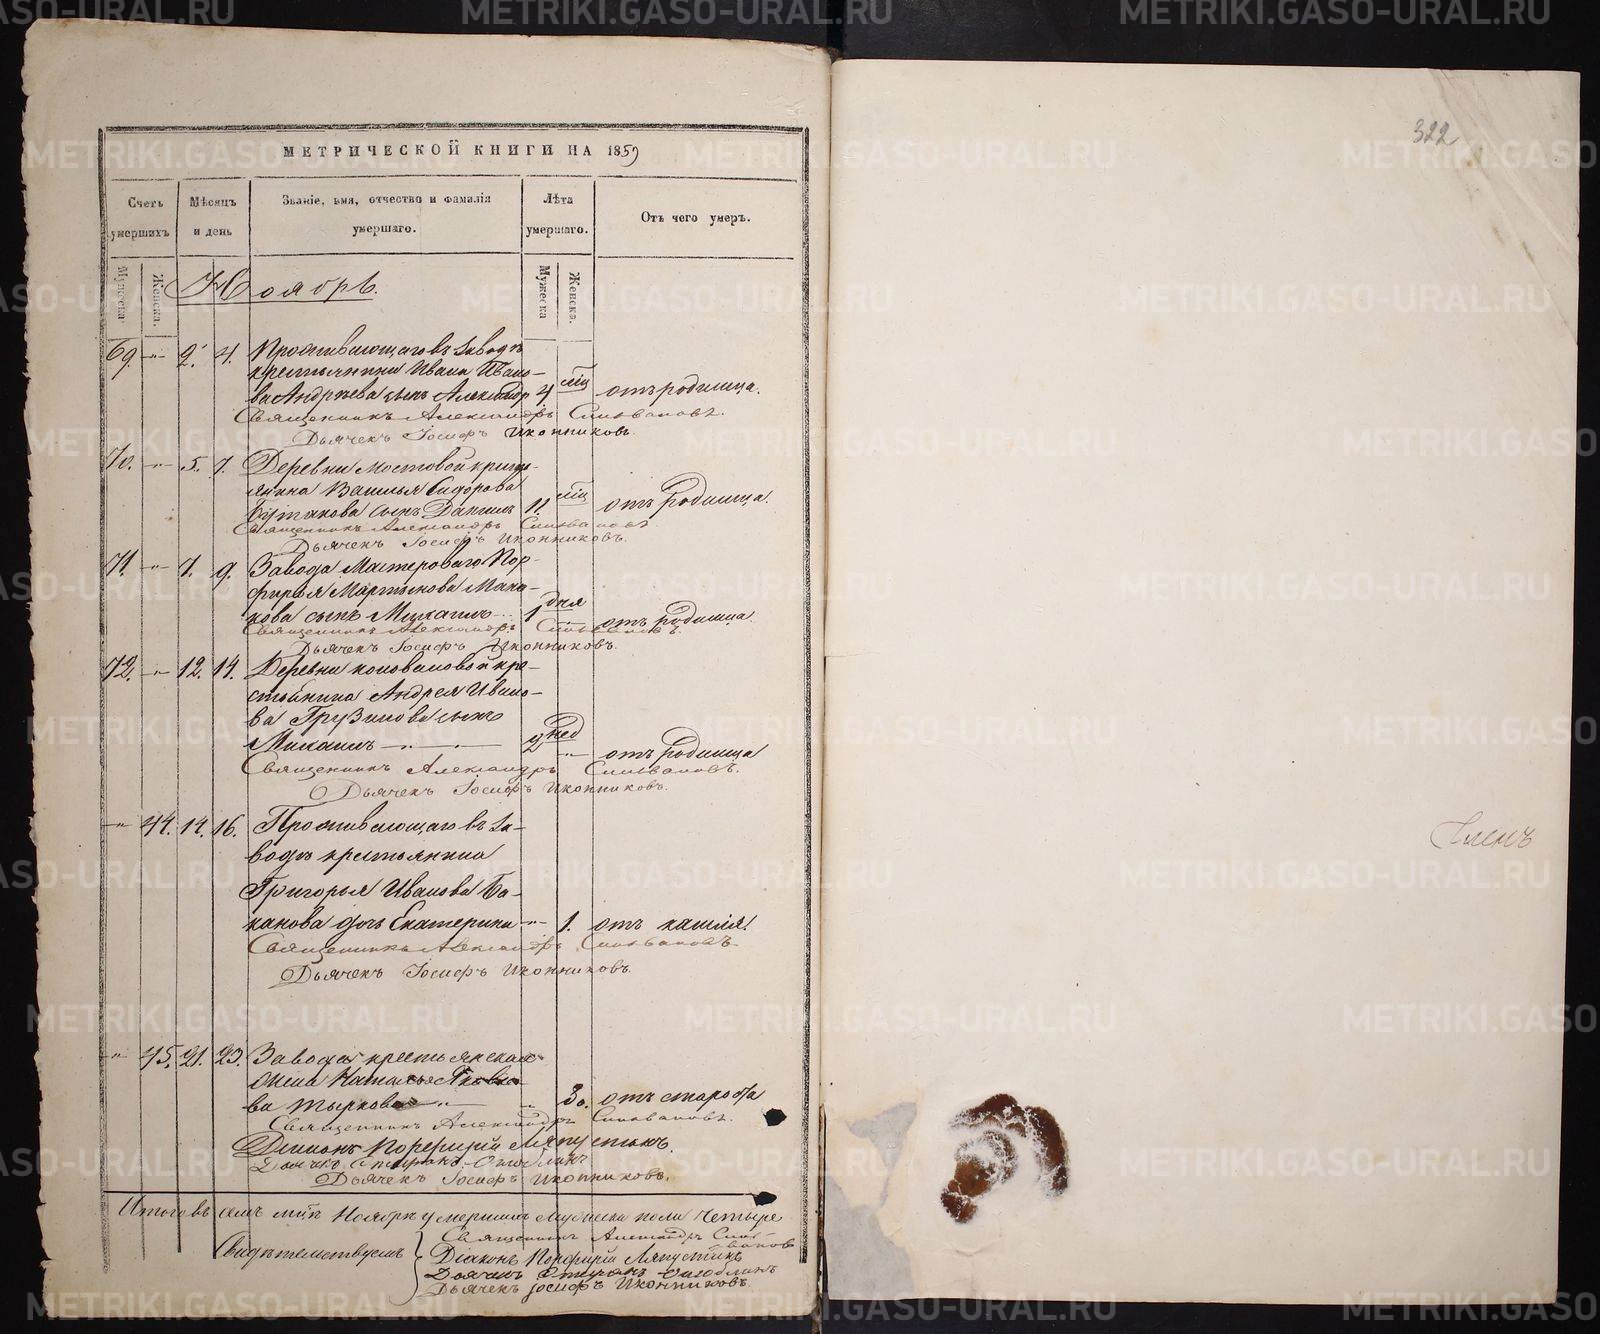 МЕТРИЧЕСКОЙ КНИГИ НА 1859
Счетъ умершихъ
Мѣсяцъ и день
Званіе, имя, отчество и фамилія умершаго.
Лѣта умершаго.
Отъ чего умеръ.
Мужеска
Женска.
Мужеска
Женска.
Ноябрь.
69. " 2. 4. Проживающаго въ заводѣ
крестьянина Ивана Ивано-
ва Андрѣева сынъ Александръ 4 мѣц отъ родимца.
Священникъ Александръ Сильвановъ.
Дьячекъ Іосифъ Иконниковъ.
70. " 5. 7. Деревни Мостовой кресть-
янина Василья Сидорова
Бутакова сынъ Данилъ 11. мѣц отъ родимца.
Священникъ Александръ Сильвановъ
Дьячекъ Іосифъ Иконниковъ.
71. " 7. 9. Завода Мастероваго Пор-
фирья Мартынова Мака-
кова сынъ Михаилъ 1 дня отъ родимца.
Священникъ Александръ Сильвановъ.
Дьячекъ Іосифъ Иконниковъ.
72. " 12. 14. Деревни Коноваловой кре-
стьянина Андрея Ивано-
ва Грузинова сынъ
Михаилъ 2 нед " отъ родимца
Священникъ Александръ Сильвановъ.
Дьячекъ Іосифъ Иконниковъ.
" 44. 14. 16. Проживающаго въ за-
водѣ крестьянина
Григорья Иванова Ба-
канова дочь Екатерина " 1. отъ кашля.
Священникъ Александръ Сильвановъ.
Дьячекъ Іосифъ Иконниковъ.
" 45. 21. 23. Завода крестьянская
жена Наталья Яковле-
ва " 30. отъ старости
Священникъ Александръ Сильвановъ.
Діаконъ Порфирій Ляпустинъ.
Дьячекъ
Дьячекъ Іосифъ Иконниковъ.
Итого въ семъ мцѣ Ноябрѣ умершихъ мужеска пола четыре
Свидѣтельствуемъ
Священникъ Александръ Силь-
вановъ
Діаконъ Порфирій Ляпустинъ
Дьячекъ
Дьячекъ Іосифъ Иконниковъ.
322
Членъ
METRIKI.GASO-URAL.RU